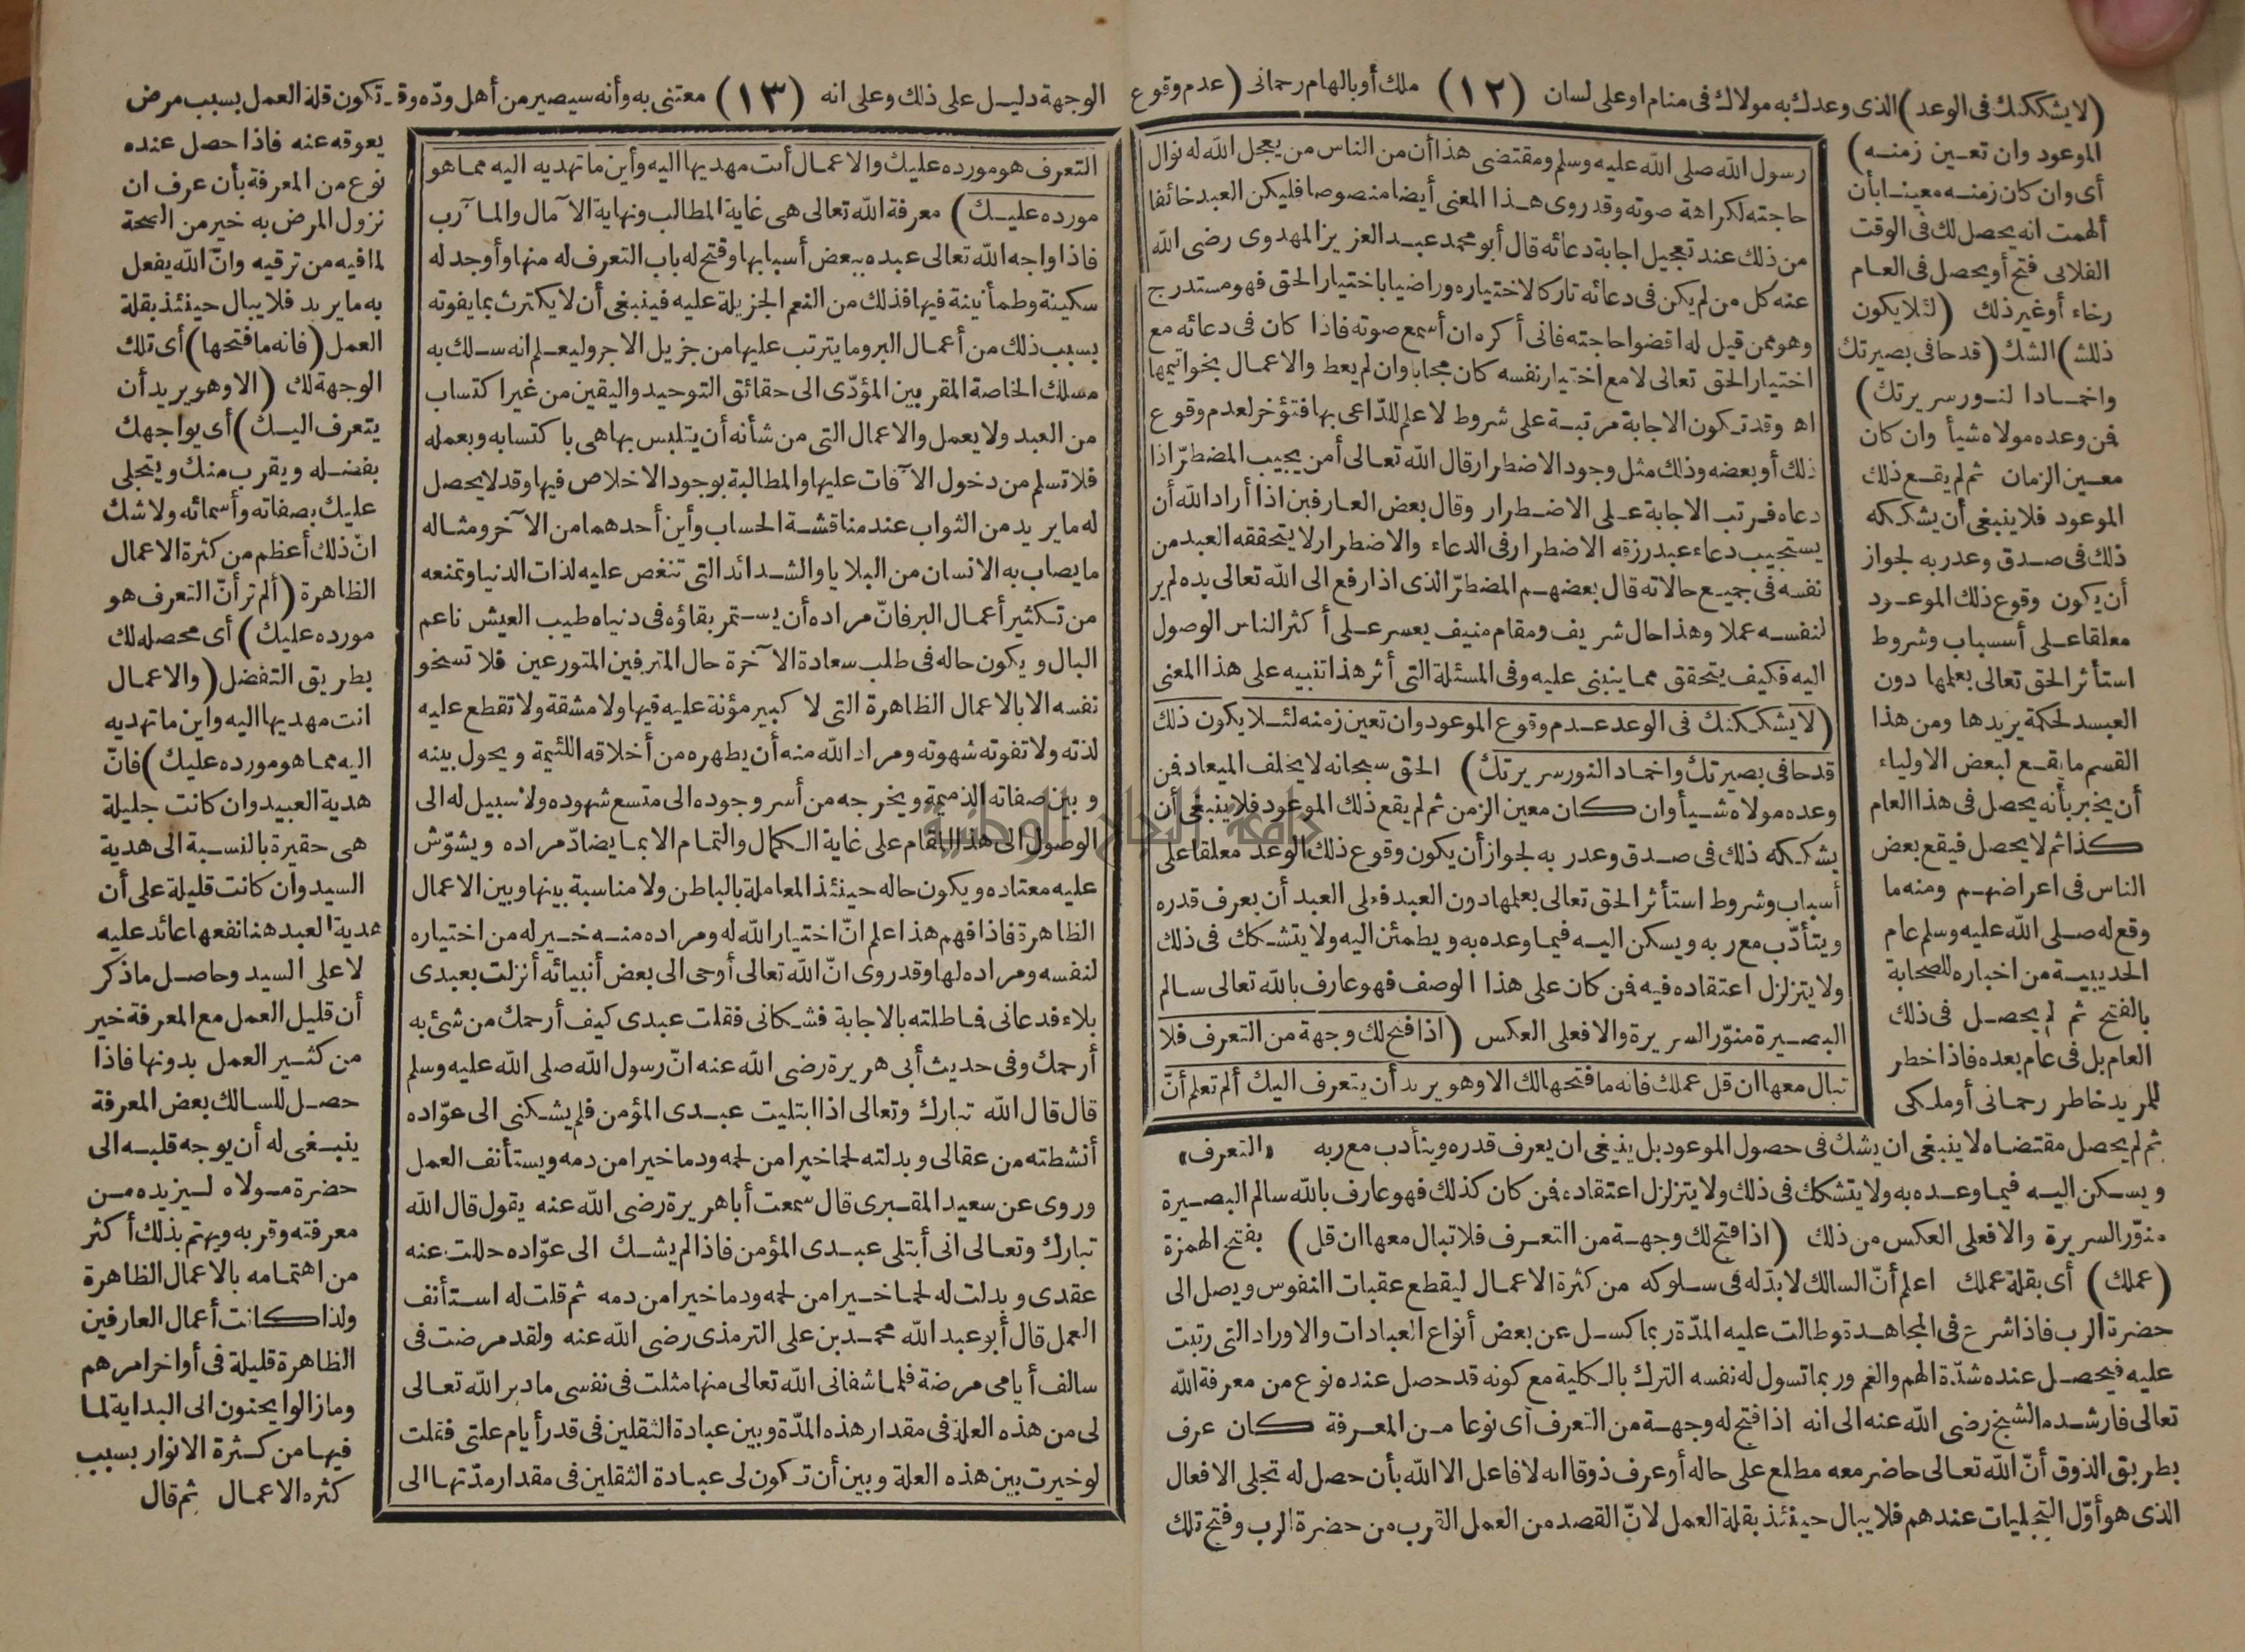 (لا يشككنك فى الوعد) الذى وعدك به مولاك فى منام او على لسان (١٢) ملك أو بالهام رحمانى (عدم وقوع
الموعود وان تعين زمنه)
أى وان كان زمنه معينا بأن
ألهمت انه يحصل لك فى الوقت
الفلانى فتح أو يحصل فى العام
رخاء أو غير ذلك (لئلا يكون
ذلك) الشك (قدحا فى بصيرتك
واخمادا لنور سريرتك)
فمن وعده مولاه شيأ وان كان
معين الزمان ثم لم يقع ذلك
الموعود فلا ينبغى أن يشككه
ذلك فى صدق وعد ربه لجواز
أن يكون وقوع ذلك الموعود
معلقا على أسباب وشروط
استأثر الحق تعالى بعلمها دون
العبد لحكمة يريدها ومن هذا
القسم ما يقع لبعض الاولياء
أن يخبر بأنه يحصل فى هذا العام
كذا ثم لا يحصل فيقع بعض
الناس فى اعراضهم ومنه ما
وقع له صلى الله عليه وسلم عام
الحديبية من اخباره للصحابة
بالفتح ثم لم يحصل فى ذلك
العام بل فى عام بعده فاذا خطر
للمريد خاطر رحمانى أو ملكى
ثم لم يحصل مقتضاه لا ينبغى ان يشك فى حصول الموعود بل ينبغى ان يعرف قدره ويتأدب مع ربه «التعرف»
ويسكن اليه فيما وعده به ولا يتشكك فى ذلك ولا يتزلزل اعتقاده فمن كان كذلك فهو عارف بالله سالم البصيرة
منوّر السريرة والا فعلى العكس من ذلك (اذا فتح لك وجهة من التعرف فلا تبال معها ان قل) بفتح الهمزة
(عملك) أى بقلة عملك اعلم أنّ السالك لا بدّ له فى سلوكه من كثرة الاعمال ليقطع عقبات النفوس ويصل الى
حضرة الرب فاذا شرع فى المجاهدة وطالت عليه المدّة ربما كسل عن بعض أنواع العبادات والاوراد التى رتبت
عليه فيحصل عنده شدّة الهم والغم وربما تسول له نفسه الترك بالكلية مع كونه قد حصل عنده نوع من معرفة الله
تعالى فارشده الشيخ رضى الله عنه الى انه اذا فتح له وجهة من التعرف أى نوعا من المعرفة كان عرف
بطريق الذوق أنّ الله تعالى حاضر معه مطلع على حاله أو عرف ذوقا انه لا فاعل الا الله بأن حصل له تجلى الافعال
الذى هو أوّل التجليات عندهم فلا يبال حينئذ بقلة العمل لانّ القصد من العمل القرب من حضرة الرب وفتح تلك
رسول الله صلى الله عليه وسلم ومقتضى هذا أن من الناس من يعجل الله له نوال
حاجته لكراهة صوته وقد روى هذا المعنى أيضا منصوصا فليكن العبد خائفا
من ذلك عند تعجيل اجابة دعائه قال أبو محمد عبد العزيز المهدوى رضى الله
عنه كل من لم يكن فى دعائه تاركا لاختياره وراضيا باختيار الحق فهو مستدرج
وهو ممن قيل له اقضوا حاجته فانى أكره ان أسمع صوته فاذا كان فى دعائه مع
اختيار الحق تعالى لا مع اختيار نفسه كان مجابا وان لم يعط والاعمال بخواتيمها
اه وقد تكون الاجابة مرتبة على شروط لا علم للدّاعى بها فتؤخر لعدم وقوع
ذلك أو بعضه وذلك مثل وجود الاضطرار قال الله تعالى أمن يجيب المضطرّ اذا
دعاه فرتب الاجابة على الاضطرار وقال بعض العارفين اذا أراد الله أن
يستجيب دعاء عبد رزقه الاضطرار فى الدعاء والاضطرار لا يتحققه العبد من
نفسه فى جميع حالاته قال بعضهم المضطرّ الذى اذا رفع الى الله تعالى يده لم ير
لنفسه عملا وهذا حال شريف ومقام منيف يعسر على أكثر الناس الوصول
اليه فكيف يتحقق مما ينبنى عليه وفى المسئلة التى أثر هذا تنبيه على هذا المعنى
(لا يشككنك فى الوعد عدم وقوع الموعود وان تعين زمنه لئلا يكون ذلك
قدحا فى بصيرتك واخماد النور سريرتك) الحق سبحانه لا يخلف الميعاد فمن
وعده مولاه شيأ وان كان معين الزمن ثم لم يقع ذلك الموعود فلا ينبغى أن
يشككه ذلك فى صدق وعد ربه لجواز أن يكون وقوع ذلك الوعد معلقا على
أسباب وشروط استأثر الحق تعالى بعلمها دون العبد فعلى العبد أن يعرف قدره
ويتأدّب مع ربه ويسكن اليه فيما وعده به ويطمئن اليه ولا يتشكك فى ذلك
ولا يتزلزل اعتقاده فيه فمن كان على هذا الوصف فهو عارف بالله تعالى سالم
البصيرة منوّر السريرة والا فعلى العكس (اذا فتح لك وجهة من التعرف فلا
تبال معها ان قل عملك فانه ما فتحها لك الا وهو يريد أن يتعرف اليك ألم تعلم أنّ
الوجهة دليل على ذلك وعلى انه (١٣) معتنى به وأنه سيصير من أهل ودّه وقد تكون قلة العمل بسبب مرض
التعرف هو مورده عليك والاعمال أنت مهديها اليه وأين ما تهديه اليه مما هو
مورده عليك) معرفة الله تعالى هى غاية المطالب ونهاية الآمال والمآرب
فاذا واجه الله تعالى عبده ببعض أسبابها وفتح له باب التعرف له منها وأوجد له
سكينة وطمأنينة فيها فذلك من النعم الجزيلة عليه فينبغى أن لا يكترث بما يفوته
بسبب ذلك من أعمال البر وما يترتب عليها من جزيل الاجر وليعلم انه سلك به
مسلك الخاصة المقربين المؤدّى الى حقائق التوحيد واليقين من غير اكتساب
من العبد ولا يعمل والاعمال التى من شأنه أن يتلبس بها هى باكتسابه وبعمله
فلا تسلم من دخول الآفات عليها والمطالبة بوجود الاخلاص فيها وقد لا يحصل
له ما يريد من الثواب عند مناقشة الحساب وأين أحدهما من الآخر ومثاله
ما يصاب به الانسان من البلايا والشدائد التى تنغص عليه لذات الدنيا وتمنعه
من تكثير أعمال البر فانّ مراده أن يستمر بقاؤه فى دنياه طيب العيش ناعم
البال ويكون حاله فى طلب سعادة الآخرة حال المترفين المتورعين فلا تسخو
نفسه الا بالاعمال الظاهرة التى لا كبير مؤنة عليه فيها ولا مشقة ولا تقطع عليه
لذته ولا تفوته شهوته ومراد الله منه أن يطهره من أخلاقه اللئيمة ويحول بينه
وبين صفاته الذميمة ويخرجه من أسر وجوده الى متسع شهوده ولا سبيل له الى
الوصول الى هذا المقام على غاية الكمال والتمام الا بما يضادّ مراده ويشوّش
عليه معتاده ويكون حاله حينئذ المعاملة بالباطن ولا مناسبة بينها وبين الاعمال
الظاهرة فاذا فهم هذا علم انّ اختيار الله له ومراده منه خير له من اختياره
لنفسه ومراده لها وقد روى انّ الله تعالى أوحى الى بعض أنبيائه أنزلت بعبدى
بلاء فدعانى فماطلته بالاجابة فشكانى فقلت عبدى كيف أرحمك من شئ به
أرحمك وفى حديث أبى هريرة رضى الله عنه انّ رسول الله صلى الله عليه وسلم
قال قال الله تبارك وتعالى اذا ابتليت عبدى المؤمن فلم يشكنى الى عوّاده
أنشطته من عقالى وبدلته لحما خيرا من لحمه ودما خيرا من دمه ويستأنف العمل
وروى عن سعيد المقبرى قال سمعت أبا هريرة رضى الله عنه يقول قال الله
تبارك وتعالى انى أبتلى عبدى المؤمن فاذا لم يشك الى عوّاده حللت عنه
عقدى وبدلت له لحما خيرا من لحمه ودما خيرا من دمه ثم قلت له استأنف
العمل قال أبو عبد الله محمد بن على الترمذى رضى الله عنه ولقد مرضت فى
سالف أيامى مرضة فلما شفانى الله تعالى منها مثلت فى نفسى ما دبر الله تعالى
لى من هذه العلة فى مقدار هذه المدّة وبين عبادة الثقلين فى قدر أيام علتى فقلت
لو خيرت بين هذه العلة وبين أن تكون لى عبادة الثقلين فى مقدار مدّتها الى
يعوقه عنه فاذا حصل عنده
نوع من المعرفة بأن عرف ان
نزول المرض به خير من الصحة
لما فيه من ترقيه وانّ الله يفعل
به ما يريد فلا يبال حينئذ بقلة
العمل (فانه ما فتحها) أى تلك
الوجهة لك (الا وهو يريد أن
يتعرف اليك) أى يواجهك
بفضله ويقرب منك ويتجلى
عليك بصفاته وأسمائه ولا شك
انّ ذلك أعظم من كثرة الاعمال
الظاهرة (ألم تر أنّ التعرف هو
مورده عليك) أى محصله لك
بطريق التفضل (والاعمال
انت مهديها اليه واين ما تهديه
اليه مما هو مورده عليك) فانّ
هدية العبيد وان كانت جليلة
هى حقيرة بالنسبة الى هدية
السيد وان كانت قليلة على أن
هدية العبد هنا نفعها عائد عليه
لا على السيد وحاصل ما ذكر
أن قليل العمل مع المعرفة خير
من كثير العمل بدونها فاذا
حصل للسالك بعض المعرفة
ينبغى له أن يوجه قلبه الى
حضرة مولاه ليزيده من
معرفته وقربه ويهتم بذلك أكثر
من اهتمامه بالاعمال الظاهرة
ولذا كانت أعمال العارفين
الظاهرة قليلة فى أواخر امرهم
وما زالوا يحنون الى البداية لما
فيها من كثرة الانوار بسبب
كثرة الاعمال ثم قال
جامعة النجاح الوطنية